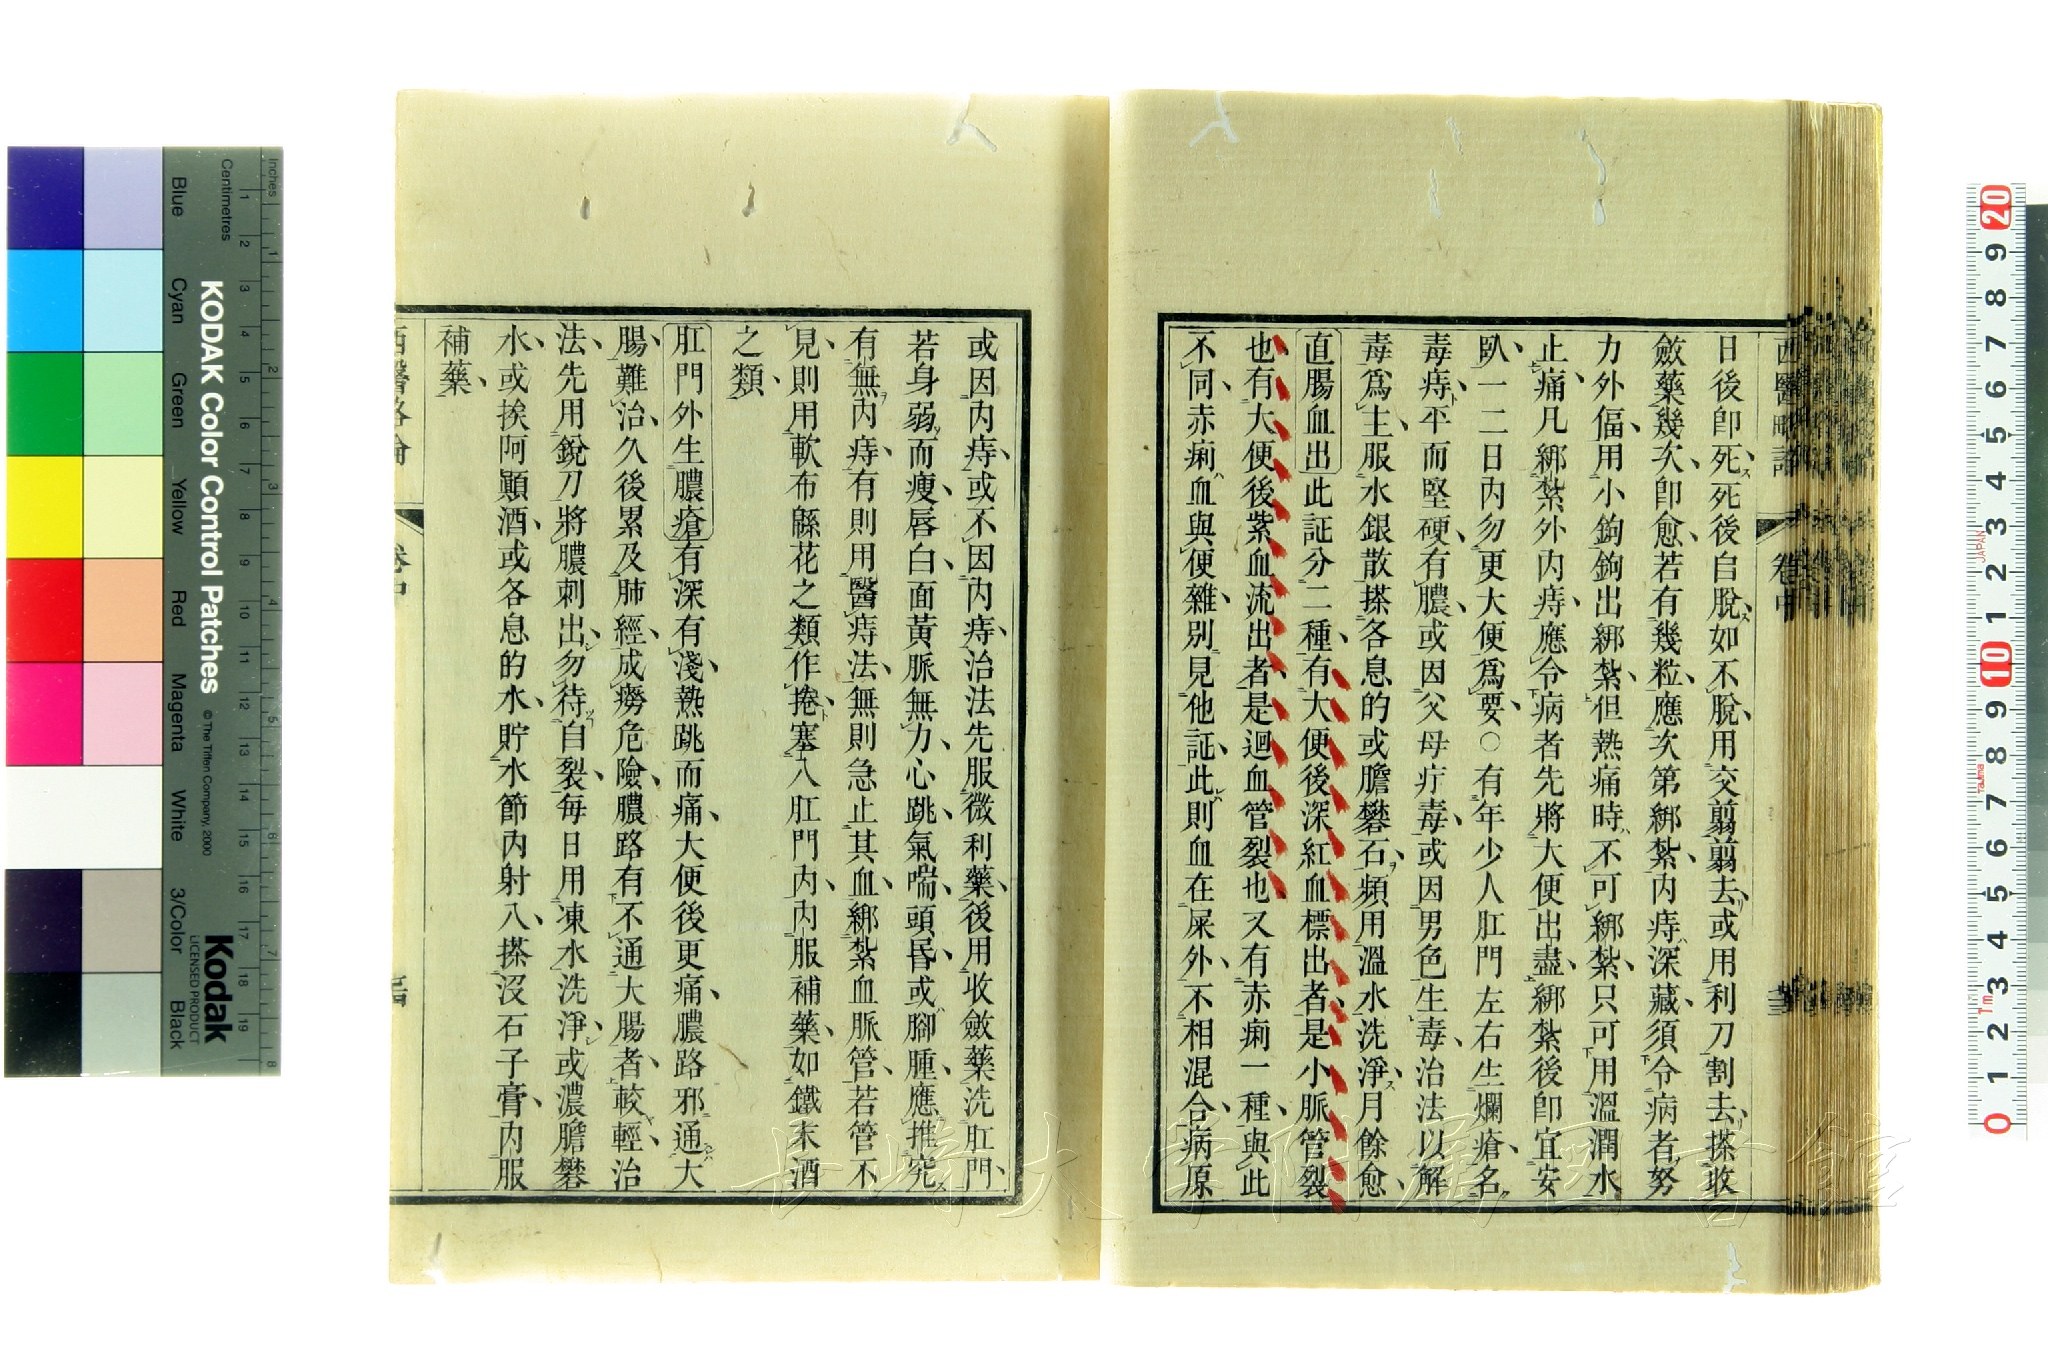 西醫略論
卷中
日後卽死死後自脫如不脫用交翦翦去或用利刀割去搽收
斂藥幾次卽愈若有幾粒應次第綁紮内痔深藏須令病者努
力外偪用小鉤鉤出綁紮但熱痛時不可綁紮只可用溫潤水
止痛凡綁紮外内痔應令病者先將大便出盡綁紮後卽宜安
臥一二日内勿更大便爲要○有年少人肛門左右生爛瘡名
毒痔平而堅硬有膿或因父母疔毒或因男色生毒治法以解
毒爲主服水銀散搽各息的或膽礬石頻用溫水洗淨月餘愈
直腸血出此証分二種有大便後深紅血標出者是小脈管裂
也有大便後紫血流出者是迴血管裂也又有赤痢一種與此
不同赤痢血與便雜別見他証此則血在屎外不相混合病原
或因内痔或不因内痔治法先服微利藥後用收斂藥洗肛門
若身弱而瘦唇白面黃脈無力心跳氣喘頭昏或腳腫應推究
有無内痔有則用醫痔法無則急止其血綁紮血脈管若管不
見則用軟布緜花之類作捲塞入肛門内内服補藥如鐵末酒
之類
肛門外生膿瘡有深有淺熱跳而痛大便後更痛膿路邪通大
腸難治久後累及肺經成癆危險膿路有不通大腸者較輕治
法先用銳刀將膿刺出勿待自裂每日用凍水洗淨或濃膽礬
水或挨阿顯酒或各息的水貯水節内射入搽沒石子膏内服
補藥
西醫略論
卷中
KODAK Color Control Patches
© The Tiffen Company, 2000
Kodak
LICENSED PRODUCT
Inches
Centimetres
Blue
Cyan
Green
Yellow
Red
Magenta
White
3/Color
Black
1 2 3 4 5 6 7 8 9 10 11 12 13 14 15 16 17 18 19
1 2 3 4 5 6 7 8
20 9 8 7 6 5 4 3 2 1 10 9 8 7 6 5 4 3 2 1 0
JAPAN
長崎大学附属図書館